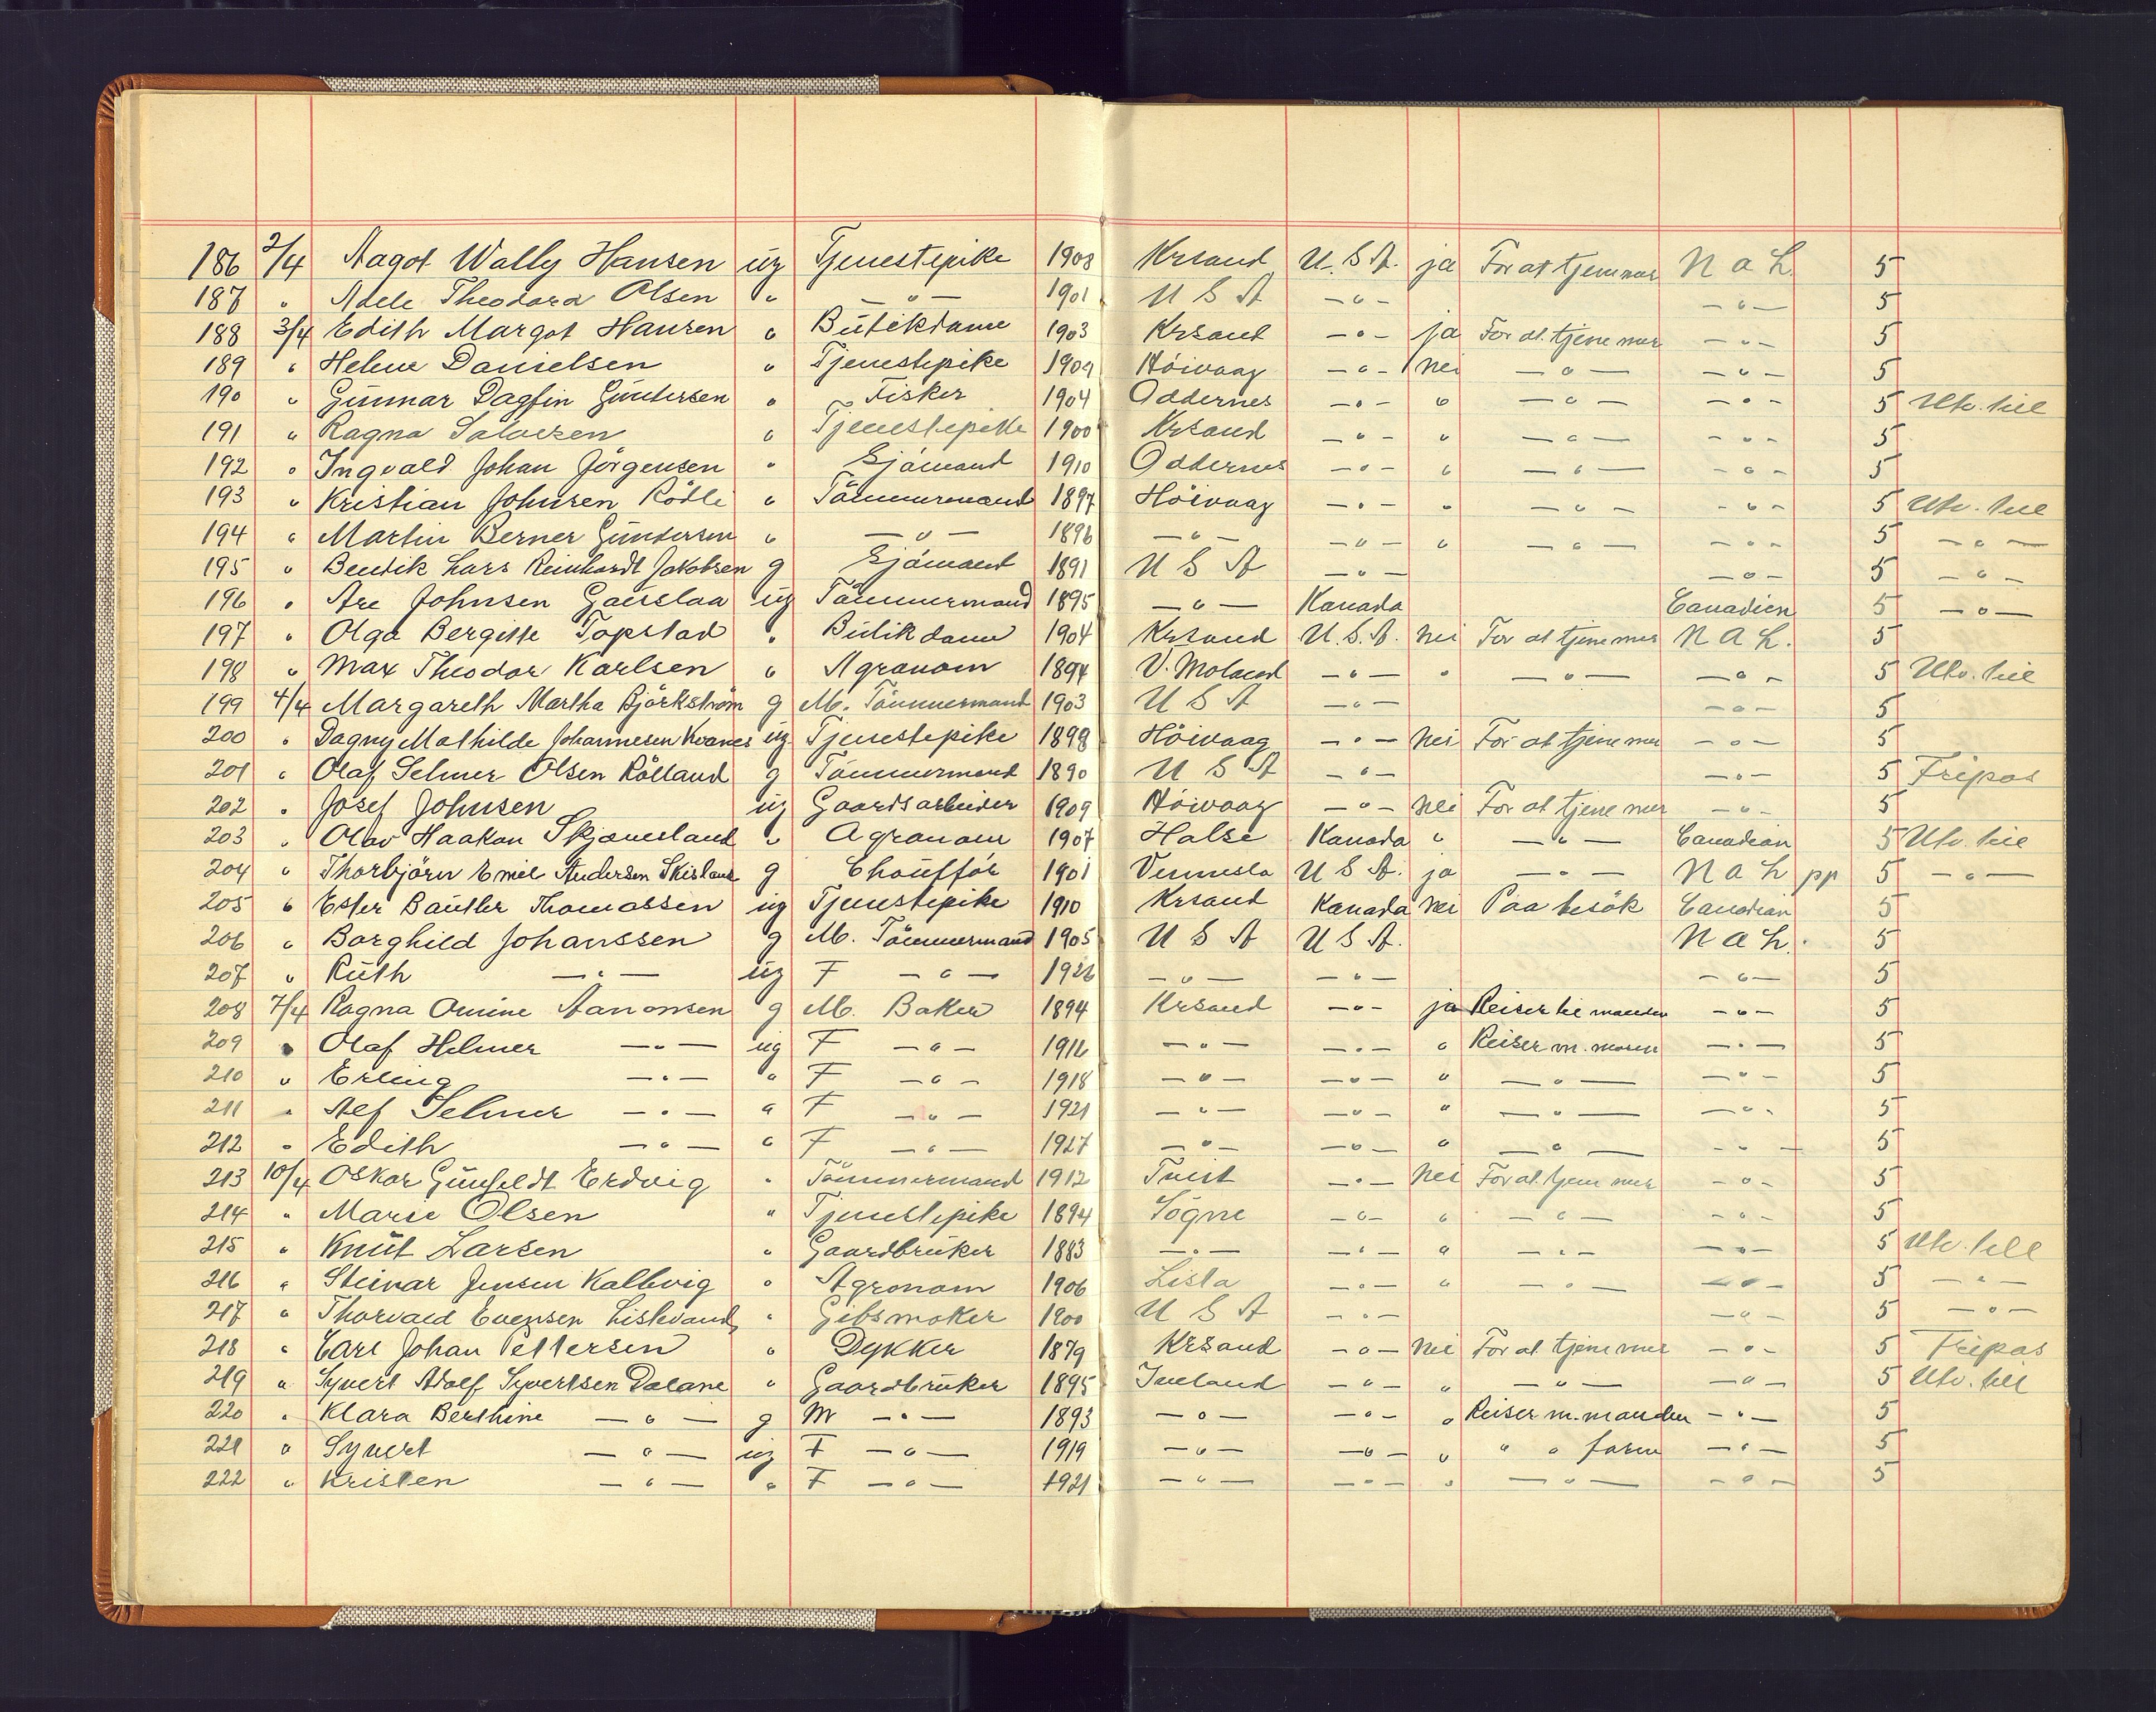 186 2/4 Aagot Wally Hansen ug Tjenestepike 1908 Krsand U.S.A. ja For at tjene mer N a L. 5
187 " Adele Theodora Olsen " — " — 1901 U S A — " — — " — 5
188 3/4 Edith Margot Hansen " Butikdame 1903 Krsand — " — ja For at tjene mer — " — 5
189 " Helene Danielsen " Tjenestepike 1904 Höivaag — " — nei — " — — " — 5
190 " Gunnar Dagfin Gundersen " Fisker 1904 Oddernes — " — " — " — — " — 5 Utv. till
191 " Ragna Salvesen " Tjenestepike 1900 Krsand — " — " — " — — " — 5
192 " Ingvald Johan Jörgensen " Sjömand 1910 Oddernes — " — " — " — — " — 5
193 " Kristian Johnsen Rödli " Tömmermand 1897 Höivaag — " — " — " — — " — 5 Utv. till
194 " Martin Berner Gundersen " — " — 1896 — " — — " — " — " — — " — 5 — " —
195 " Bendik Lars Reinhardt Jakobsen g Sjömand 1891 U S A — " — — " — 5 — " —
196 " Are Johnsen ug Tömmermand 1895 — " — Kanada Canadien 5 — " —
197 " Olga Bergitte Topstad " Butikdame 1904 Krsand U.S.A. nei For at tjene mer N a L. 5
198 " Max Theodor Karlsen " Agronom 1894 V. Moland — " — " — " — — " — 5 Utv. till
199 4/4 Margareth Martha Björkström g M. Tömmermand 1903 U S A — " — — " — 5
200 " Dagny Mathilde Johannesen Kvanes ug Tjenestepike 1898 Höivaag — " — nei For at tjene mer — " — 5
201 " Olaf Selmer Olsen Rölland g Tömmermand 1890 U S A — " — — " — 5 Fripas
202 " Josef Johnsen ug Gaardsarbeider 1909 Höivaag — " — nei For at tjene mer — " — 5
203 " Olav Haakon Skjævesland " Agronom 1907 Halse Kanada " — " — Canadian 5 Utv. till
204 " Thorbjörn Emil Andersen g Chauffför 1901 Vennesla U S A. ja — " — N a L pp 5 — " —
205 " Ester Bautler Thomassen ug Tjenestepike 1910 Krsand Kanada nei Paa besök Canadian 5
206 " Borghild Johanssen g M. Tömmermand 1905 U S A U S A. N a L. 5
207 " Ruth — " — ug F — " — 1926 — " — — " — — " — 5
208 7/4 Ragna Omine Aanonsen g M. Baker 1894 Krsand — " — ja Reiser til manden — " — 5
209 " Olaf Helmer — " — ug F — " — 1916 — " — — " — " Reiser m. moren — " — 5
210 " Erling — " — " F — " — 1918 — " — — " — " — " — — " — 5
211 " Alf Selmer — " — " F — " — 1921 — " — — " — " — " — — " — 5
212 " Edith — " — " F — " — 1927 — " — — " — " — " — — " — 5
213 10/4 Oskar Gunfeldt Erdvig " Tömmermand 1912 Tveit — " — nei For at tjene mer — " — 5
214 " Marie Olsen " Tjenestepike 1894 Sögne — " — " — " — — " — 5
215 " Knut Larsen " Gaardbruker 1883 — " — — " — " — " — — " — 5 Utv. till
216 " Steinar Jensen Kallevig " Agronom 1906 Lista — " — " — " — — " — 5 — " —
217 " Thorvald Evensen " Gibsmaker 1900 U S A — " — — " — 5 — " —
218 " Carl Johan Pettersen " Dykker 1879 Krsand — " — nei For at tjene mer — " — 5 Fripas
219 " Syvert Adolf Syvertsen Dalane " Gaardbruker 1895 Iveland — " — " — " — — " — 5 Utv. till
220 " Klara Berthine — " — g M — " — 1893 — " — — " — " Reiser m. manden — " — 5
221 " Syvert — " — ug F — " — 1919 — " — — " — " " " faren — " — 5
222 " Kristen — " — " F — " — 1921 — " — — " — " — " — — " — 5